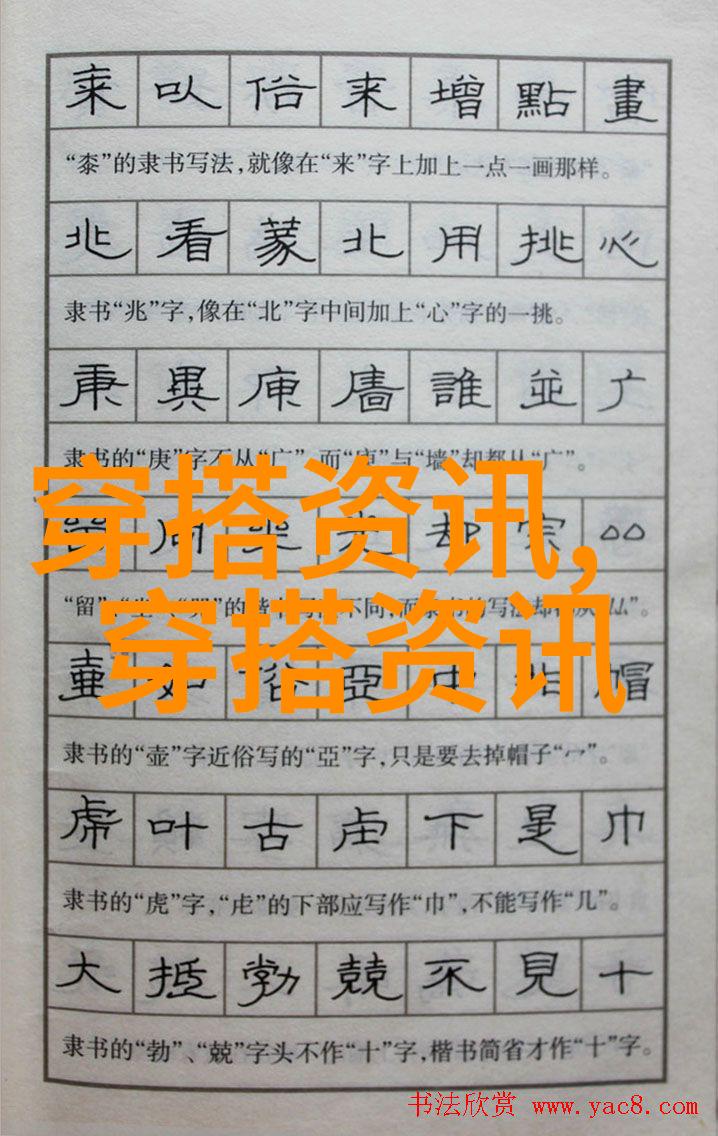 来以俗来增點畫
“桼”的隶书写法,就像在“来”字上加上一点一画那样。
兆看蒙北用挑心
隶书“兆”字,像在“北”字中间加上“心”字的一挑。
庚異庚廧誰並广
隶书的“庚”字不从“广”,而“庚”与“墙”却都从“广”。
穿搭资讯,
却
“留”
不同,而隶书的写法却
穿搭资讯
壷如俗亞中帽
隶书的“壶”字近俗写的“亞”字,只是要去掉帽子“宀”。
虎叶古虍下是巾
隶书的“虎”字,“虍”的下部应写作“巾”,不能写作“几”。
大抵勃兢不見十
隶书的“勃”、“兢”字头不作“十”字,楷书简省才作“十”字。
书法欣赏 www.yac8.com